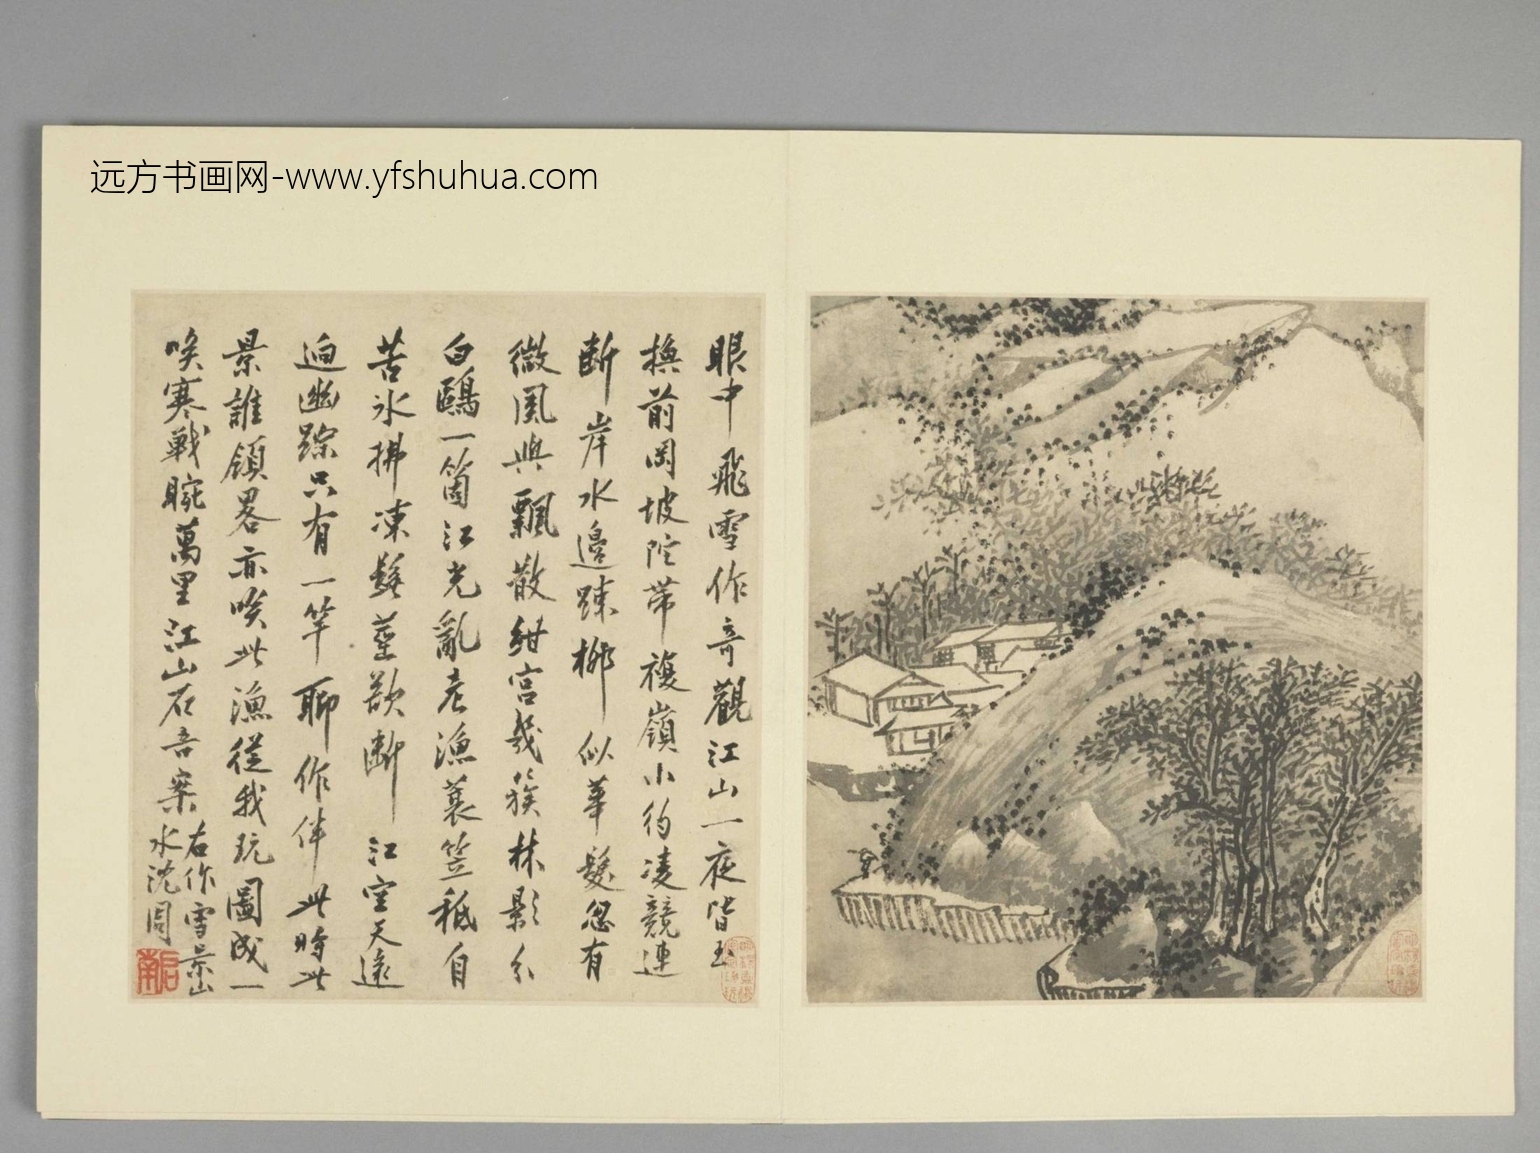 远方书画网-www.yfshuhua.com
眼中飛雪作奇觀江山一夜皆玉
換前岡坡陀帶複嶺小彴凌競連
斷岸水邊踈栁似華髮忽有
微風與飄散紺宮幾簇林影分
白鷗一箇江光亂老漁蓑笠秪自
苦氷拂凍髭莖欲斷江空天遠
逈幽踪只有一竿聊作伴此時此
景誰領畧亦咲此漁從我玩圖成一
咲寒戰腕萬里江山石吾案
右作雪景山
水沈周
啓南